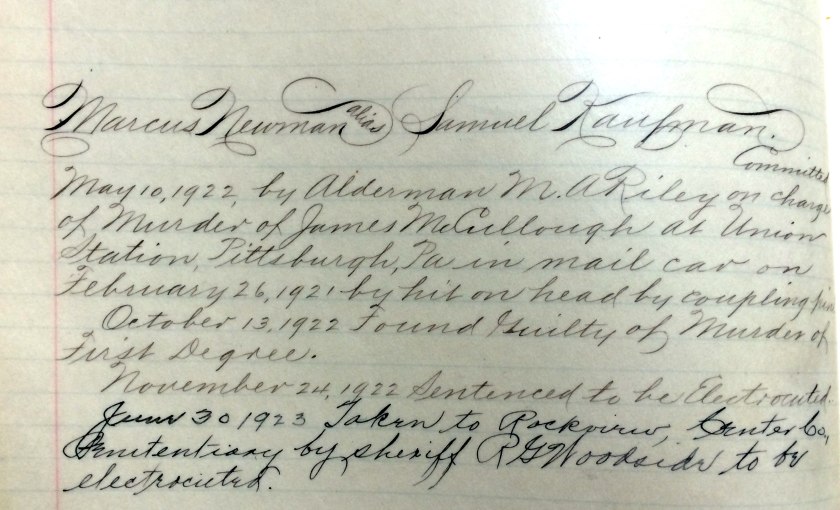 Marcus Newman alias Samuel Kaufman.
Committed
May 10, 1922, by Alderman M. A Riley on charge
of Murder of James McCullough at Union
Station, Pittsburgh, Pa in mail car on
February 26, 1921 by hit on head by coupling pin
October 13, 1922 Found Guilty of Murder of
First Degree.
November 24, 1922 Sentenced to be Electrocuted.
June 30 1923 Taken to Rockview, Center Co,
Penitentiary by sheriff R G Woodside to be
electrocuted.